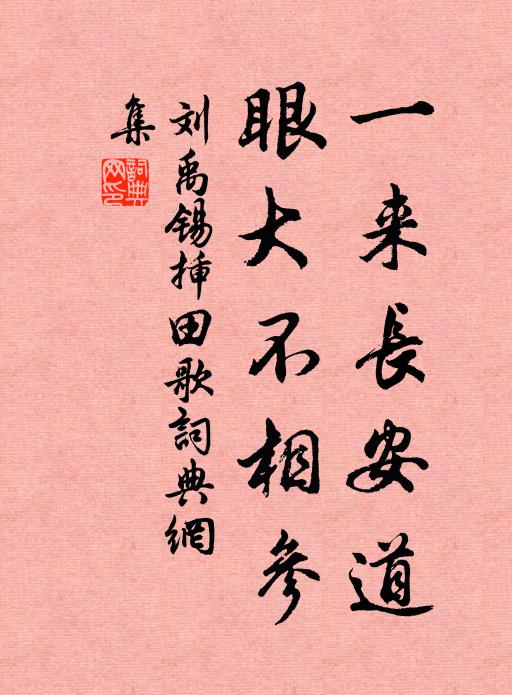 一来長安道
眼大不相參
刘禹锡插田歌詞典網
集
詞典
网印